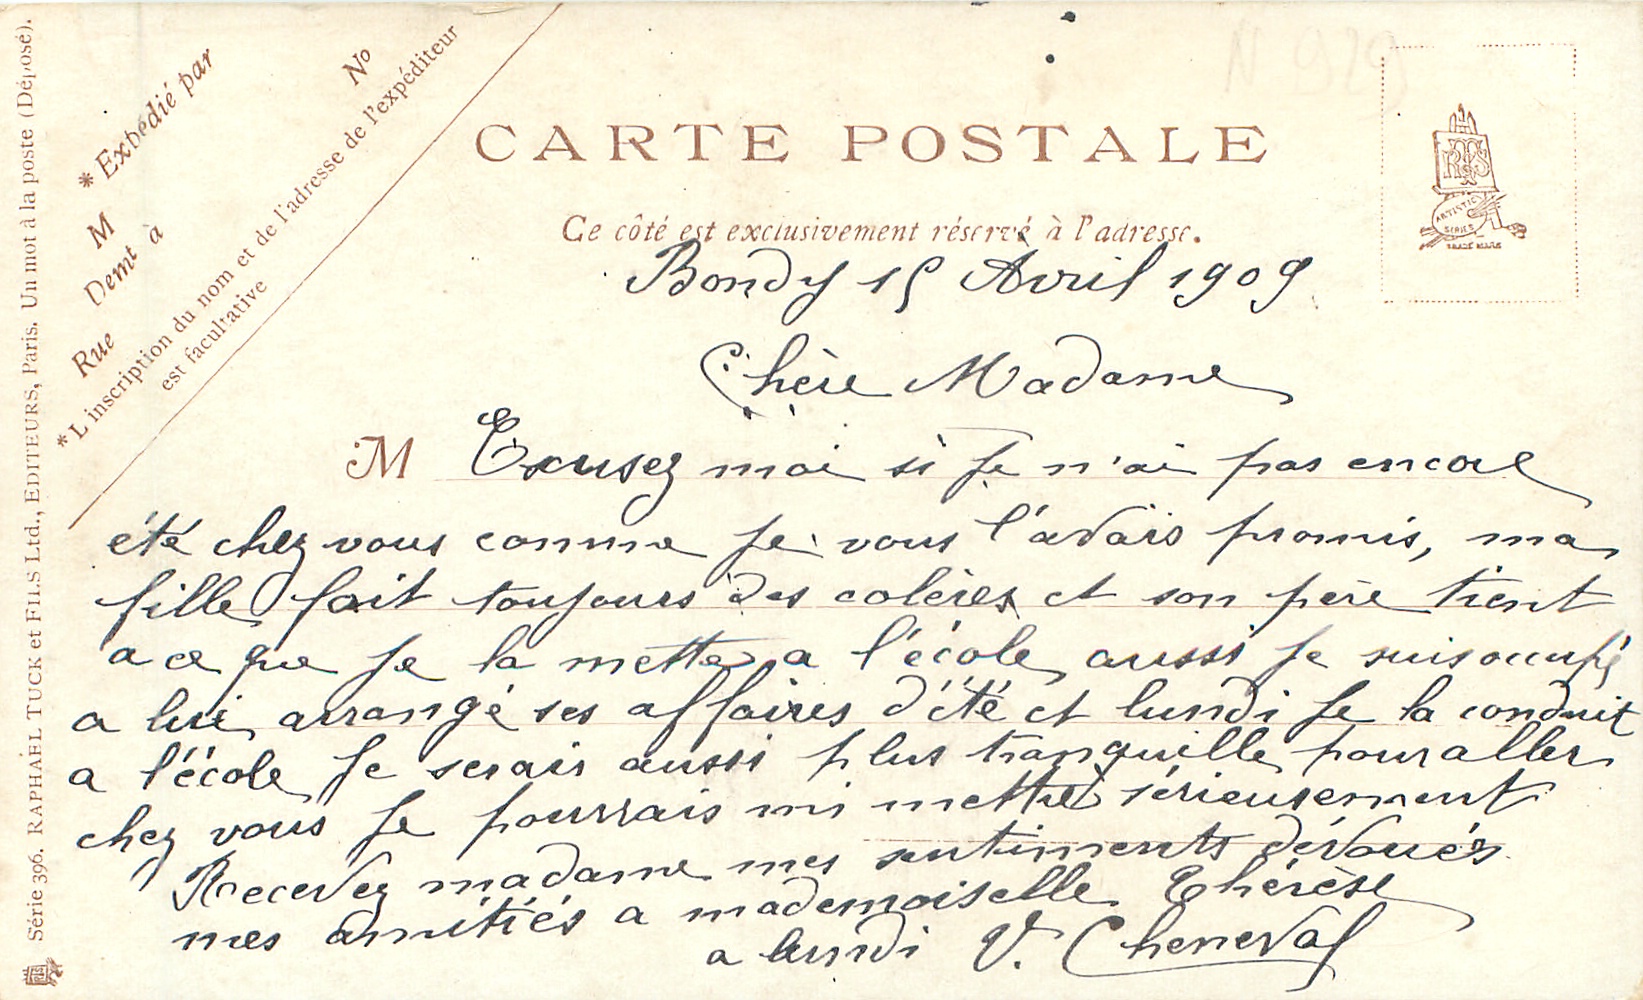 N 929
CARTE POSTALE
Ce côté est exclusivement réservé à l'adresse.
* Expédié par
M
Demt à
Rue
No
*L'inscription du nom et de l'adresse de l'expéditeur
est facultative
Série 396. RAPHAEL TUCK et FILS Ltd., EDITEURS, Paris. Un mot à la poste (Déposé).
ARTISTIC
SERIES
TRADE MARK
Bondy 15 Avril 1909
Chère Madame
M Exusez moi si je n'ai pas encore
été chez vous comme je vous l'avais promis, ma
fille fait toujours des colères et son père tient
a ce que je la mette a l'école aussi je suis occupé
a lui arrangé ses affaires d'été et lundi je la conduit
a l'école je serais aussi plus tranquille pour aller
chez vous je pourrais mi mettre sérieusement
Recevez madame mes sentiments dévoués
mes amitiés a mademoiselle Thérèse
a lundi V. Cheneval